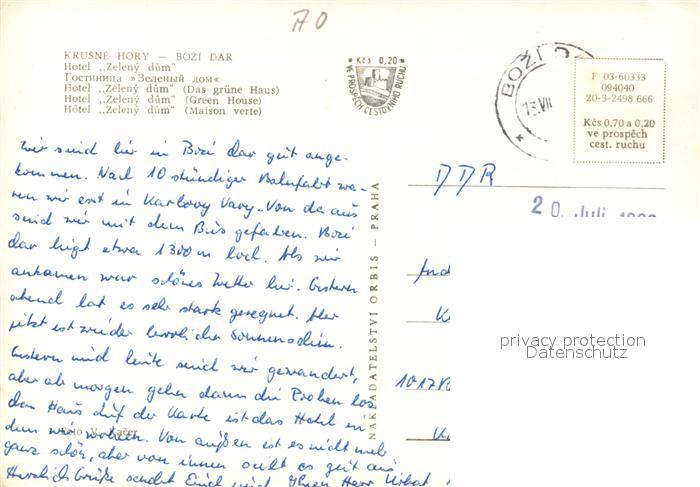 70
KRUŠNÉ HORY — BOŽÍ DAR
Hotel „Zelený dům"
Гостиница »Зеленый дом«
Hotel „Zelený dům" (Das grüne Haus)
Hotel „Zelený dům" (Green House)
Hôtel „Zelený dům" (Maison verte)
Kčs 0,20
VE PROSPĚCH CESTOVNÍHO RUCHU
BOŽÍ D
13.VII
F 03-60333
094040
20-3-2498 666
Kčs 0,70 a 0,20
ve prospěch
cest. ruchu
Wir sind hier in Bozi dar gut ange-
kommen. Nach 10 stündiger Bahnfahrt wa-
ren wir erst in Karlovy Vary. Von da aus
sind wir mit dem Bus gefahren. Bozi
dar liegt etwa 1300 m hoch. Als wir
ankamen war schönes Wetter hier. Gestern
abend hat es sehr stark geregnet. Aber
jetzt ist wieder herrlicher Sonnenschein.
Gestern und heute sind wir gewandert,
aber ab morgen gehen dann die Proben los.
Das Haus auf der Karte ist das Hotel in
dem wir wohnen. Von außen ist es nicht mehr
ganz schön, aber von innen sieht es gut aus
Herzliche Grüße sendet Euch und Ihnen Herr
Foto V. Kačer
NAKLADATELSTVÍ ORBIS — PRAHA
DDR
20. Juli
1017
privacy protection
Datenschutz